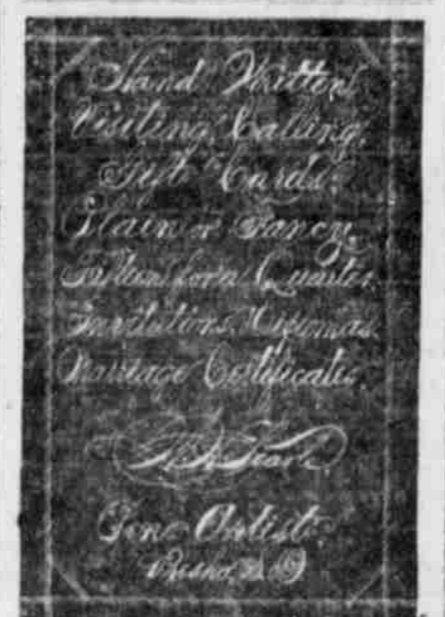 Hand Written
Visiting, Calling,
Gift Cards.
Plain or Fancy.
Fifteen for a Quarter.
Invitations, Diplomas.
Marriage Certificates.
Pen Artist.